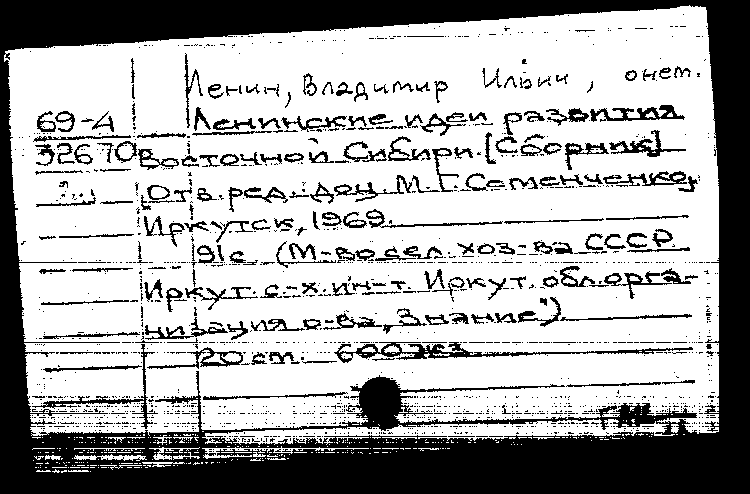 Ленин, Владимир Ильич, о нем.
69-4 Ленинские идеи развития
32670 Восточной Сибири. [Сборник]
[Отв. ред. доц. М. Г. Семенченко],
Иркутск, 1969.
91 с. (М-во сел. хоз-ва СССР.
Иркут. с.-х. ин-т. Иркут. обл. орга-
низация о-ва „Знание").
20 см. 600 экз.